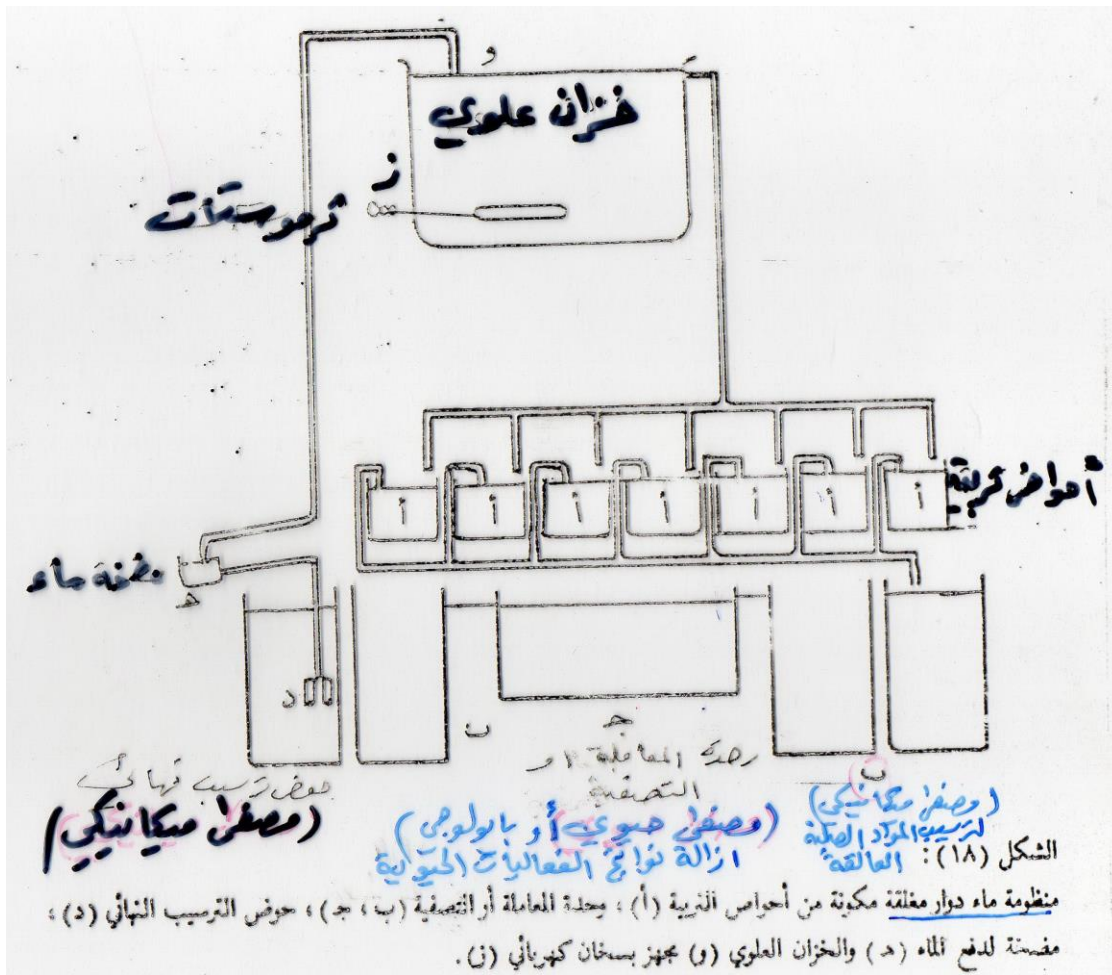 و
خزان علوي
ز
ترموستات
أحواض تربية
أ أ أ أ أ أ أ
مضخة ماء
هـ
د
ب
جـ
ب
حوض ترسيب نهائي
(مصفى ميكانيكي)
وحدة المعاملة أو
التصفية
(مصفى حيوي أو بايولوجي)
ازالة نواتج الفعاليات الحيوية
(مصفى ميكانيكي)
لترسيب المواد الصلبة
العالقة
الشكل (١٨):
منظومة ماء دوار مغلقة مكونة من أحواض التربية (أ)، وحدة المعاملة أو التصفية (ب، جـ)، حوض الترسيب النهائي (د)،
مضخة لدفع الماء (هـ) والخزان العلوي (و) مجهز بسخان كهربائي (ز).